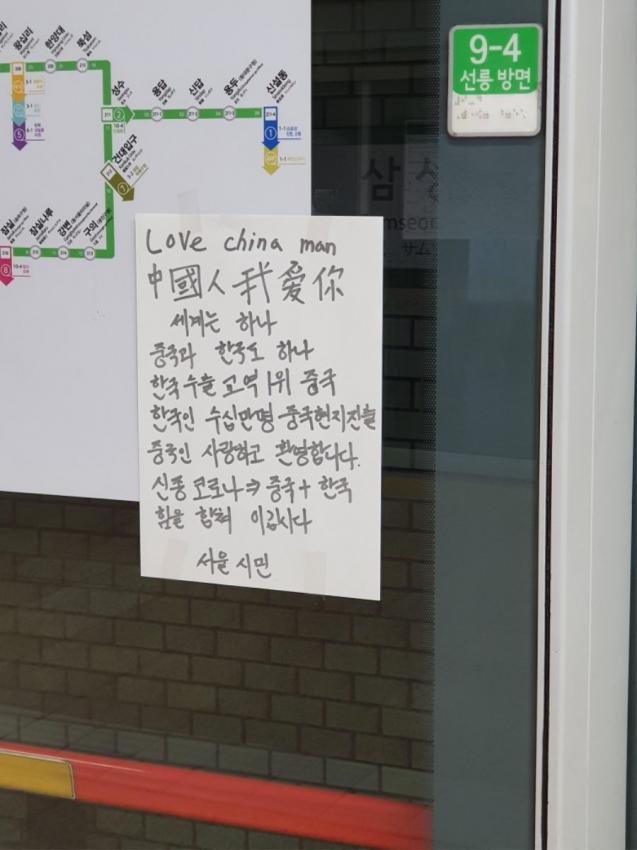 왕십리
한양대
뚝섬
성수
용답
신답
용두
신설동
건대입구
잠실
잠실나루
강변
구의
9-4
선릉 방면
삼성
Love china man
中國人我爱你
세계는 하나
중국과 한국도 하나
한국 수출 교역 1위 중국
한국인 수십만명 중국현지진출
중국인 사랑하고 환영합니다.
신종 코로나 ⇒ 중국 + 한국
힘을 합쳐 이깁시다
서울 시민